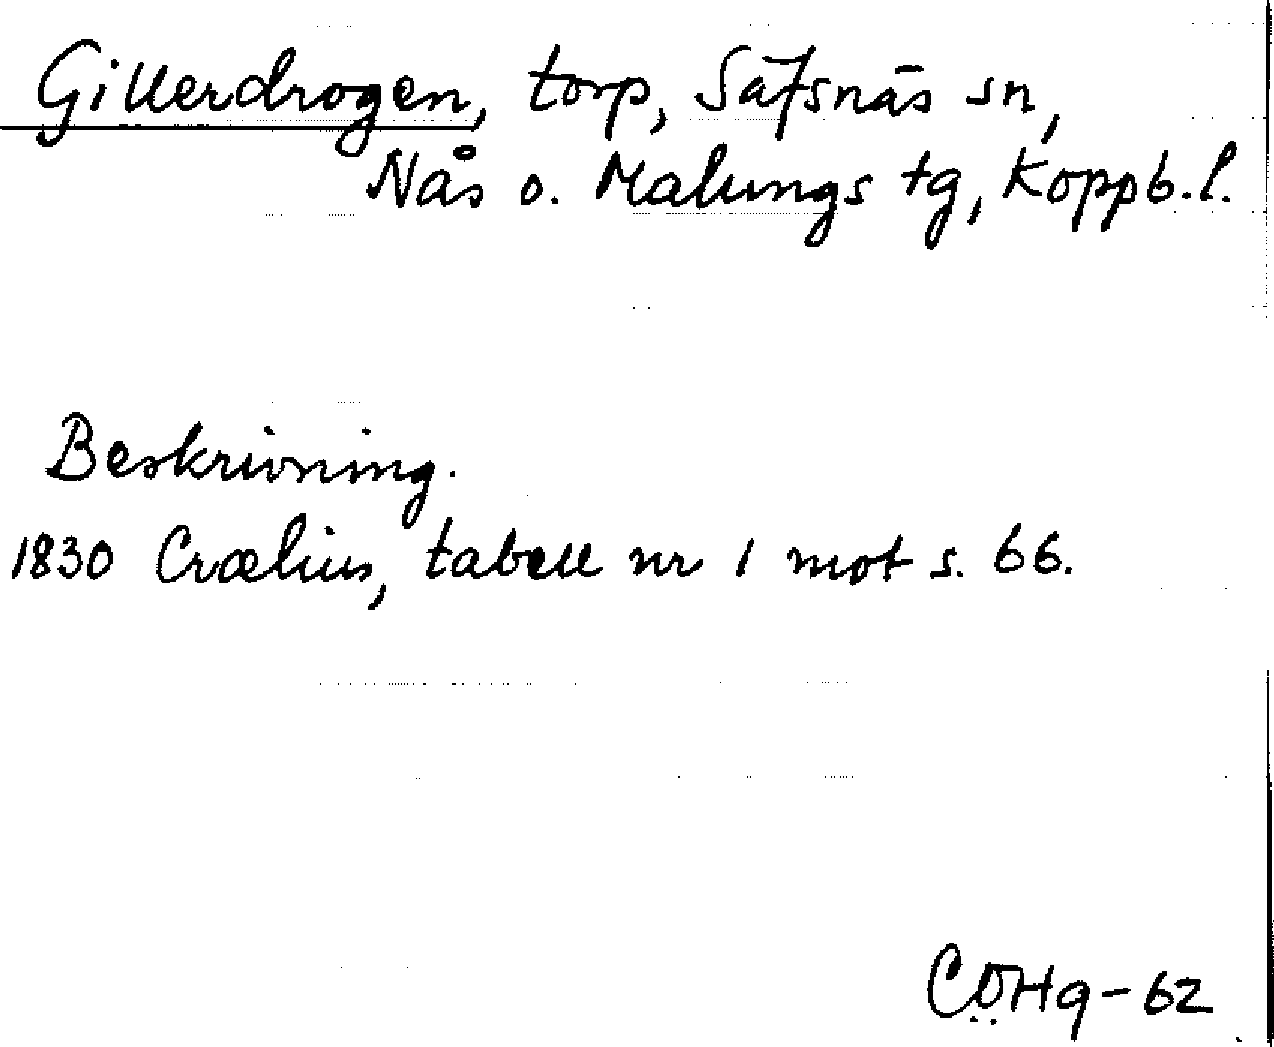 Gillerdrogen, torp, Säfsnäs sn,
Nås o. Malungs tg, Koppb. l.
Beskrivning.
1830 Crælius, tabell nr 1 mot s. 66.
CÖHg-62